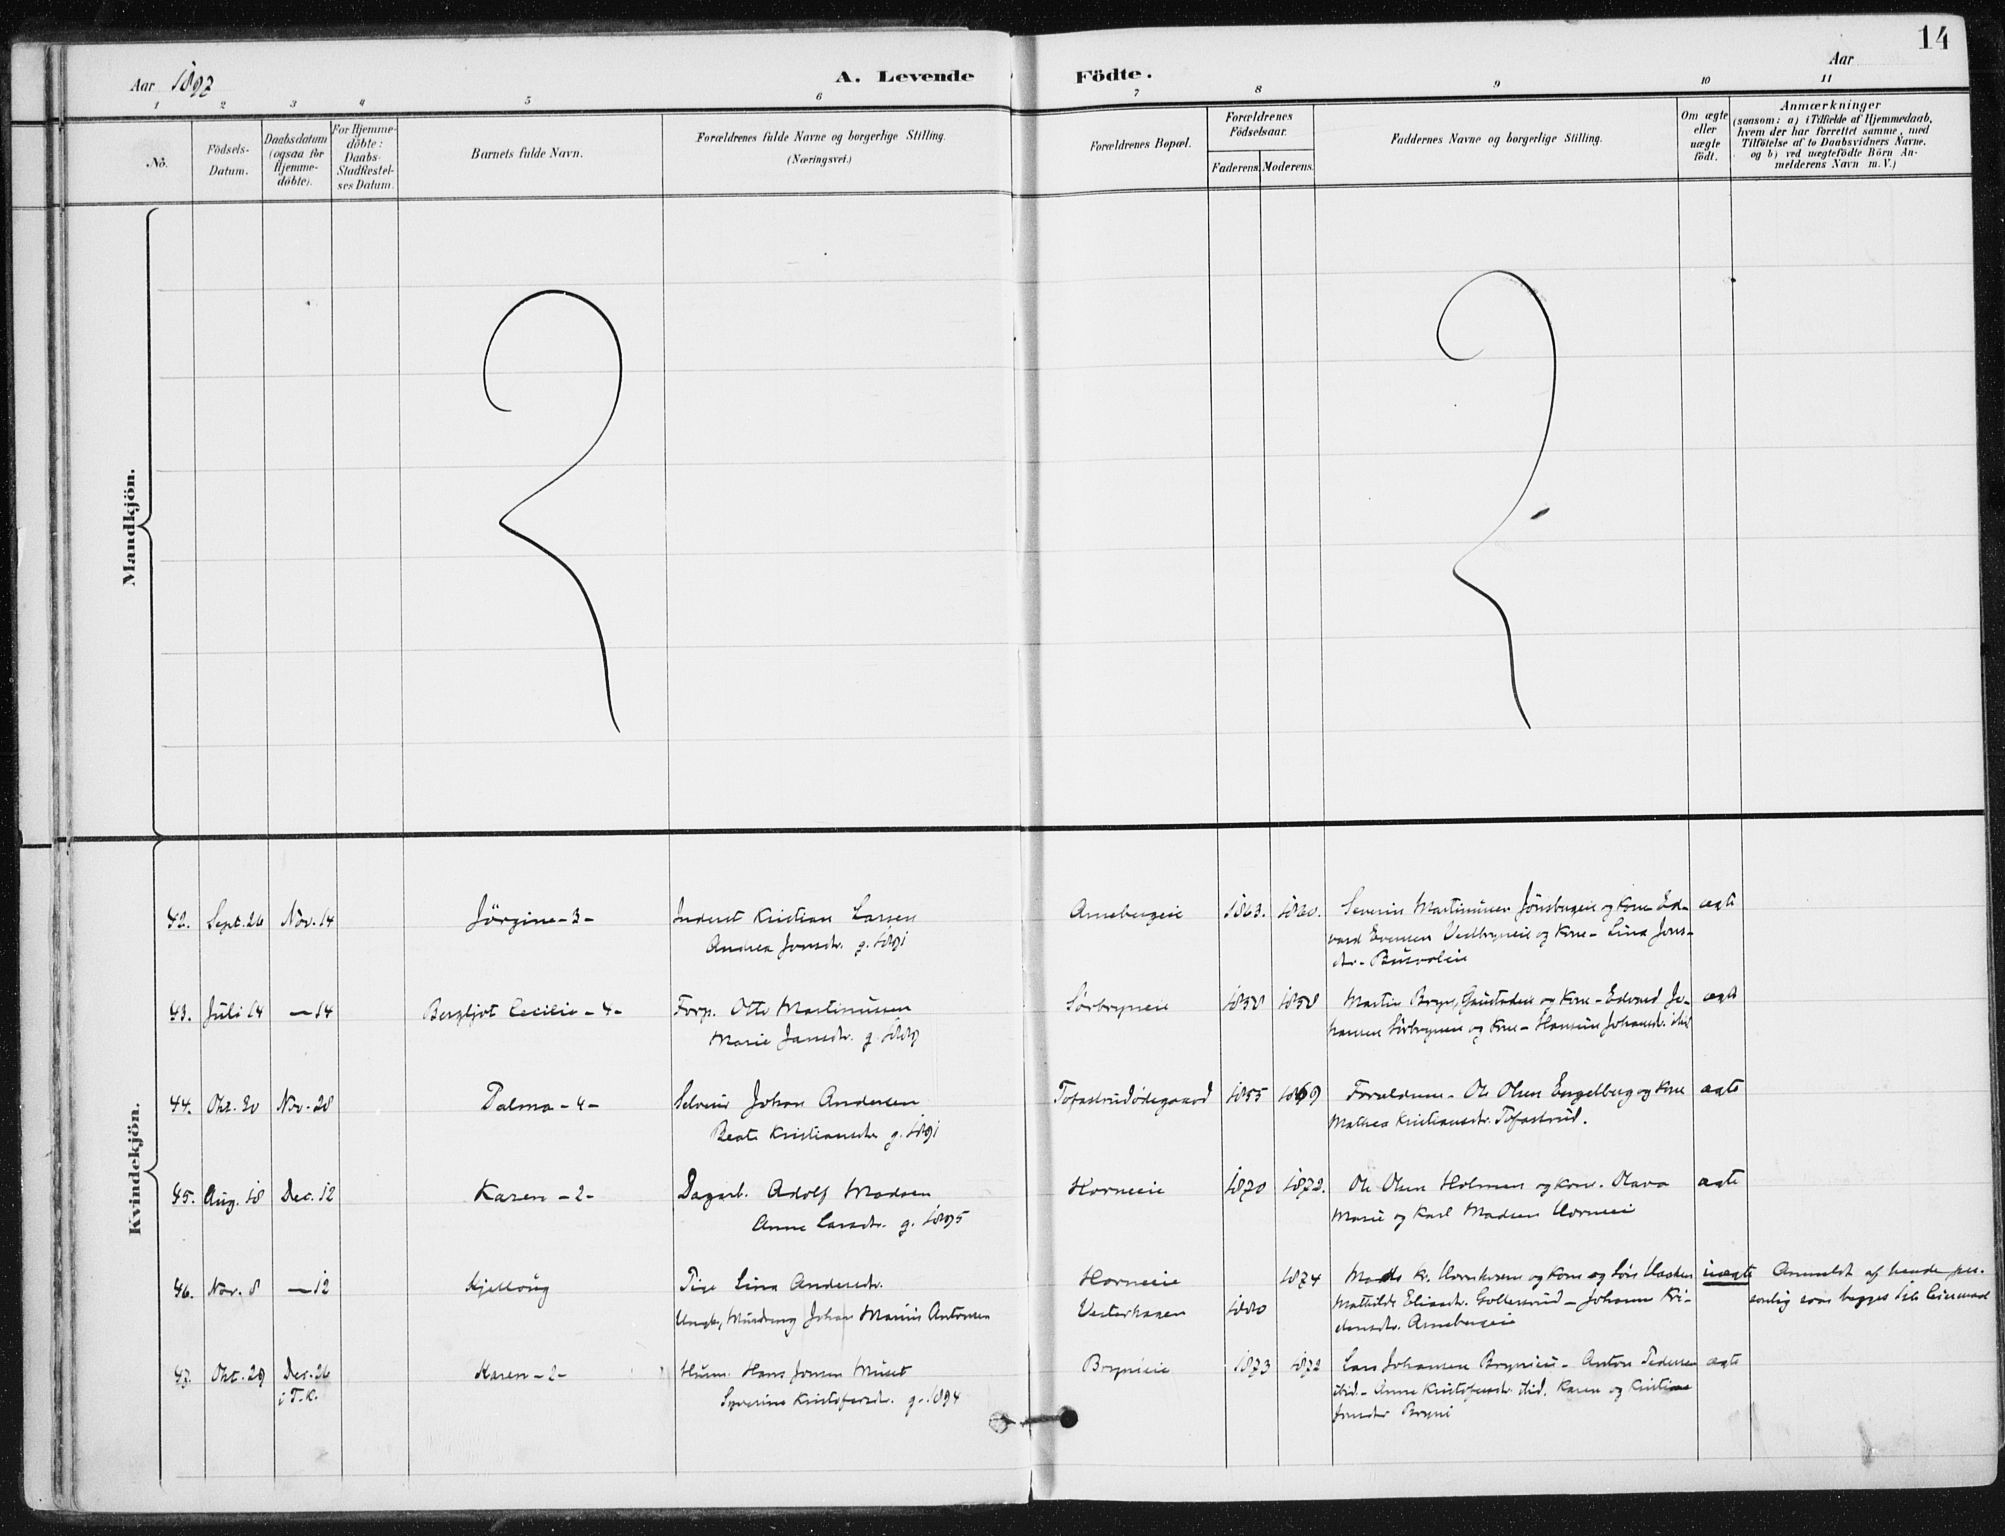 14
Aar 1897
A. Levende Födte.
Aar
1 2 3 4 5 6 7 8 9 10 11
No.
Födsels-Datum.
Daabsdatum (ogsaa for Hjemme-döbte).
For Hjemme-döbte: Daabs-Stadfæstel-ses Datum.
Barnets fulde Navn.
Forældrenes fulde Navne og borgerlige Stilling.
(Næringsvei.)
Forældrenes Bopæl.
Forældrenes Födselsaar.
Faderens. Moderens.
Faddernes Navne og borgerlige Stilling.
Om ægte eller uægte födt.
Anmærkninger
(saasom: a) i Tilfælde af Hjemmedaab, hvem der har forrettet samme, med Tilföielse af to Daabsvidners Navne. og b) ved uægtefödte Börn An-melderens Navn m. V.)
Mandkjön.
Kvindekjön.
42. Sept. 26 Nov. 14 Jörgine - 3 - Inderst Kristian Larsen Arnebergeie 1863. 1860. Severin Martinusen Jönsbergeie og Kone Ed- ægte
Andrea Jonsdr. g. 1891 vard Evensen og Kone - Lina Jons-
dr.
43. Juli 14 — 14 Bergljot Cecilie - 4 - Forp. Otto Martinusen Sørbryneie 1858 1858 Martin Bryn, og Kone - Edvard Jo- ægte
Marie Jansdr. g. hansen Sörbryneie og Kone - Johansdr. ibid
44. Okt. 20 Nov. 28 Palma - 4 - Selveier Johan Andersen Tofastrudødegaard 1855 1869 Forældrene - Ole Olsen Engelberg og Kone ægte
Beate Kristiansdr. g. 1891 Mathea Kristiansdr. Tofastrud.
45. Aug. 18 Dec. 12 Karen - 2 - Dagarb. Adolf Madsen Horneeie 1870 1872. Ole Olsen Holmen og Kone. Olava ægte
Anne Larsdr. g. 1895 Marie og Karl Madsen Horneeie
46. Nov. 8 — 12 Kjellaug Pige Lina Andersdr. Horneeie 1874 Mads Kr. og Kone og uægte Anmeldt af hende per-
Ungk. Johan Marius Antonsen Vesterhagen 1880 Mathilde Eliasdr. - Johanne Kri- sonlig som begges
stensdr. Arnebergeie
47. Okt. 29 Dec. 26 Karen - 2 - Husm. Hans Jonsen Bryneeie 1873 1872 Lars Johansen Bryneeie - Anton Pedersen ægte
i T. K. Syverine Kristofersdr. g. 1894 ibid - Anne Kristofersdr. ibid. Karen og Kristine
Jonsdr